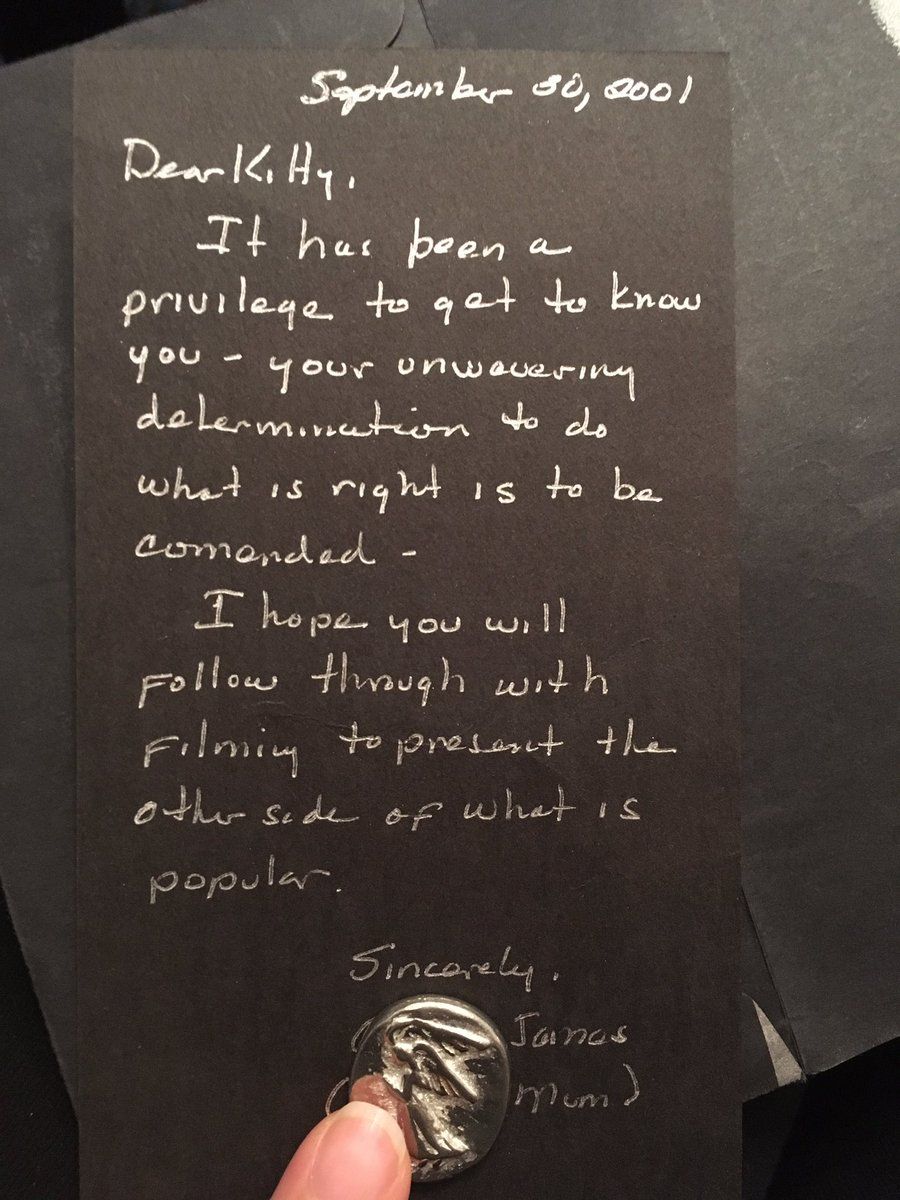 September 30, 2001
Dear Kitty,
It has been a
privilege to get to know
you - your unwavering
determination to do
what is right is to be
comended -
I hope you will
follow through with
filming to present the
other side of what is
popular.
Sincerely,
Janas
Mum)